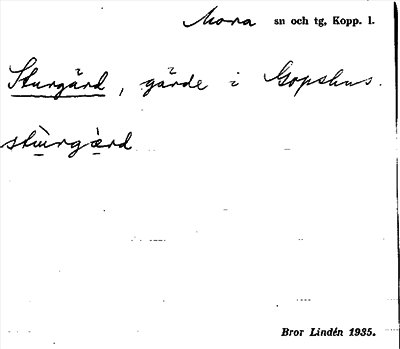 Mora sn och tg, Kopp. l.
Sturgärd, gärde i Gopshus.
stùrgàrd
Bror Lindén 1935.